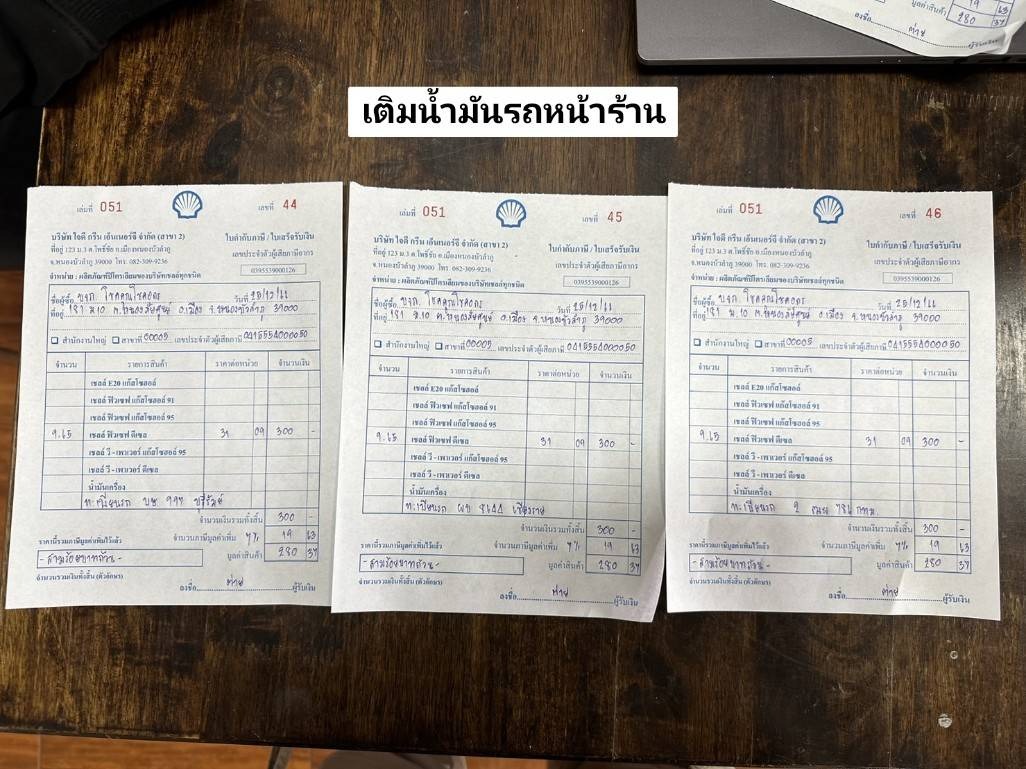 มูลค่าสินค้า 19 63
280 37
ลงชื่อ ต่าย ผู้รับเงิน
เติมน้ำมันรถหน้าร้าน
เล่มที่ 051 เลขที่ 44
บริษัท ไอดี กรีน เอ็นเนอร์จี จำกัด (สาขา 2) ใบกำกับภาษี / ใบเสร็จรับเงิน
ที่อยู่ 123 ม.3 ต.โพธิ์ชัย อ.เมืองหนองบัวลำภู เลขประจำตัวผู้เสียภาษีอากร
จ.หนองบัวลำภู 39000 โทร. 082-309-9236 0395539000126
จำหน่าย : ผลิตภัณฑ์ปิโตรเลียมของบริษัทเชลล์ทุกชนิด
ชื่อผู้ซื้อ บจก. โชคคูณโชคอุดร วันที่ 25/12/66
ที่อยู่ 181 ม.10 ต.หนองภัยศูนย์ อ.เมือง จ.หนองบัวลำภู 39000
สำนักงานใหญ่ สาขาที่ 00005 เลขประจำตัวผู้เสียภาษี 0415554000050
จำนวน รายการสินค้า ราคาต่อหน่วย จำนวนเงิน
เชลล์ E20 แก๊สโซฮอล์
เชลล์ ฟิวเซฟ แก๊สโซฮอล์ 91
เชลล์ ฟิวเซฟ แก๊สโซฮอล์ 95
9.65 เชลล์ ฟิวเซฟ ดีเซล 31 09 300 -
เชลล์ วี - เพาเวอร์ แก๊สโซฮอล์ 95
เชลล์ วี - เพาเวอร์ ดีเซล
น้ำมันเครื่อง
ทะเบียนรถ บษ 997 บุรีรัมย์
จำนวนเงินรวมทั้งสิ้น 300 -
ราคานี้รวมภาษีมูลค่าเพิ่มไว้แล้ว จำนวนภาษีมูลค่าเพิ่ม 7% 19 63
- สามร้อยบาทถ้วน - มูลค่าสินค้า 280 37
จำนวนรวมเงินทั้งสิ้น (ตัวอักษร)
ลงชื่อ ต่าย ผู้รับเงิน
เล่มที่ 051 เลขที่ 45
บริษัท ไอดี กรีน เอ็นเนอร์จี จำกัด (สาขา 2) ใบกำกับภาษี / ใบเสร็จรับเงิน
ที่อยู่ 123 ม.3 ต.โพธิ์ชัย อ.เมืองหนองบัวลำภู เลขประจำตัวผู้เสียภาษีอากร
จ.หนองบัวลำภู 39000 โทร. 082-309-9236 0395539000126
จำหน่าย : ผลิตภัณฑ์ปิโตรเลียมของบริษัทเชลล์ทุกชนิด
ชื่อผู้ซื้อ บจก. โชคคูณโชคอุดร วันที่ 25/12/66
ที่อยู่ 181 ม.10 ต.หนองภัยศูนย์ อ.เมือง จ.หนองบัวลำภู 39000
สำนักงานใหญ่ สาขาที่ 00005 เลขประจำตัวผู้เสียภาษี 0415554000050
จำนวน รายการสินค้า ราคาต่อหน่วย จำนวนเงิน
เชลล์ E20 แก๊สโซฮอล์
เชลล์ ฟิวเซฟ แก๊สโซฮอล์ 91
เชลล์ ฟิวเซฟ แก๊สโซฮอล์ 95
9.65 เชลล์ ฟิวเซฟ ดีเซล 31 09 300 -
เชลล์ วี - เพาเวอร์ แก๊สโซฮอล์ 95
เชลล์ วี - เพาเวอร์ ดีเซล
น้ำมันเครื่อง
ทะเบียนรถ ผข 8644 เชียงราย
จำนวนเงินรวมทั้งสิ้น 300 -
ราคานี้รวมภาษีมูลค่าเพิ่มไว้แล้ว จำนวนภาษีมูลค่าเพิ่ม 7% 19 63
- สามร้อยบาทถ้วน - มูลค่าสินค้า 280 37
จำนวนรวมเงินทั้งสิ้น (ตัวอักษร)
ลงชื่อ ต่าย ผู้รับเงิน
เล่มที่ 051 เลขที่ 46
บริษัท ไอดี กรีน เอ็นเนอร์จี จำกัด (สาขา 2) ใบกำกับภาษี / ใบเสร็จรับเงิน
ที่อยู่ 123 ม.3 ต.โพธิ์ชัย อ.เมืองหนองบัวลำภู เลขประจำตัวผู้เสียภาษีอากร
จ.หนองบัวลำภู 39000 โทร. 082-309-9236 0395539000126
จำหน่าย : ผลิตภัณฑ์ปิโตรเลียมของบริษัทเชลล์ทุกชนิด
ชื่อผู้ซื้อ บจก. โชคคูณโชคอุดร วันที่ 25/12/66
ที่อยู่ 181 ม.10 ต.หนองภัยศูนย์ อ.เมือง จ.หนองบัวลำภู 39000
สำนักงานใหญ่ สาขาที่ 00005 เลขประจำตัวผู้เสียภาษี 0415554000050
จำนวน รายการสินค้า ราคาต่อหน่วย จำนวนเงิน
เชลล์ E20 แก๊สโซฮอล์
เชลล์ ฟิวเซฟ แก๊สโซฮอล์ 91
เชลล์ ฟิวเซฟ แก๊สโซฮอล์ 95
9.65 เชลล์ ฟิวเซฟ ดีเซล 31 09 300 -
เชลล์ วี - เพาเวอร์ แก๊สโซฮอล์ 95
เชลล์ วี - เพาเวอร์ ดีเซล
น้ำมันเครื่อง
ทะเบียนรถ 2 784 กทม.
จำนวนเงินรวมทั้งสิ้น 300 -
ราคานี้รวมภาษีมูลค่าเพิ่มไว้แล้ว จำนวนภาษีมูลค่าเพิ่ม 7% 19 63
- สามร้อยบาทถ้วน - มูลค่าสินค้า 280 37
จำนวนรวมเงินทั้งสิ้น (ตัวอักษร)
ลงชื่อ ต่าย ผู้รับเงิน